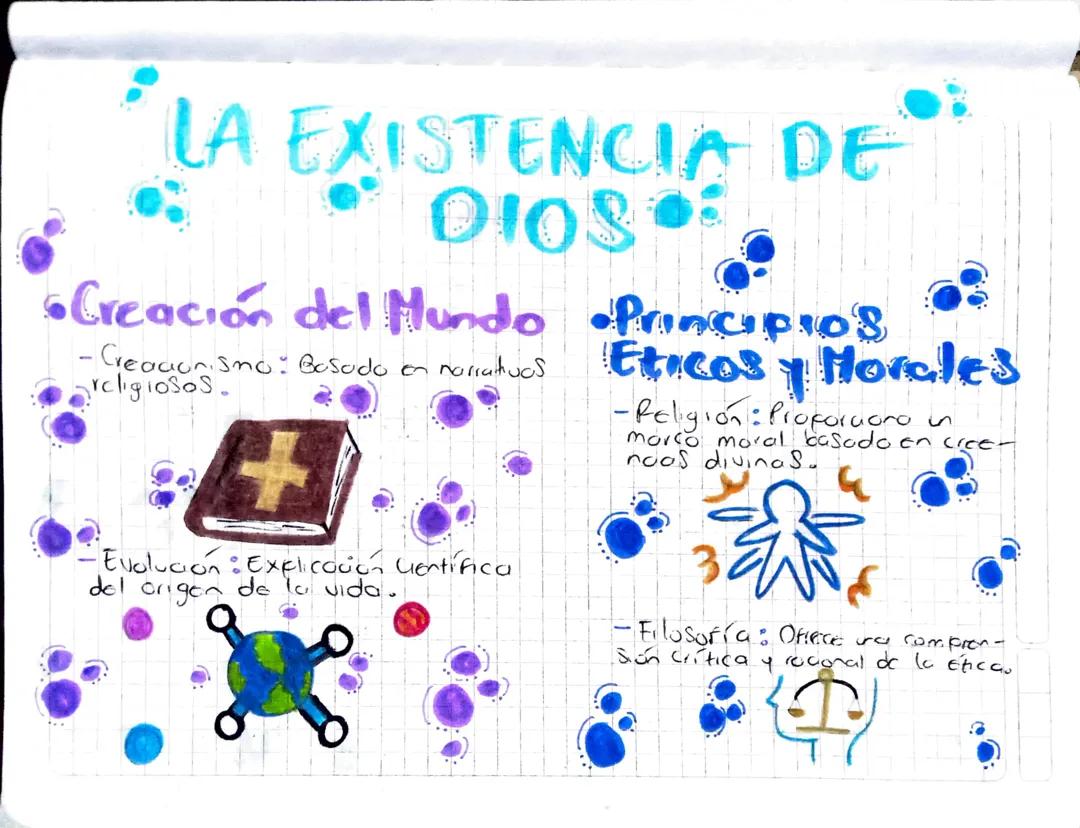 LA EXISTENCIA DE
DIOS
•Creación del Mundo
- Creacionismo: Basado en narrativas
religiosas.
- Evolución: Explicación Científica
del origen de la vida.
•Principios
Eticos y Morales
- Religión: Proporciona un
marco moral basado en cree-
ncias divinas.
- Filosofía: Ofrece una compren-
sión crítica y racional de la ética.